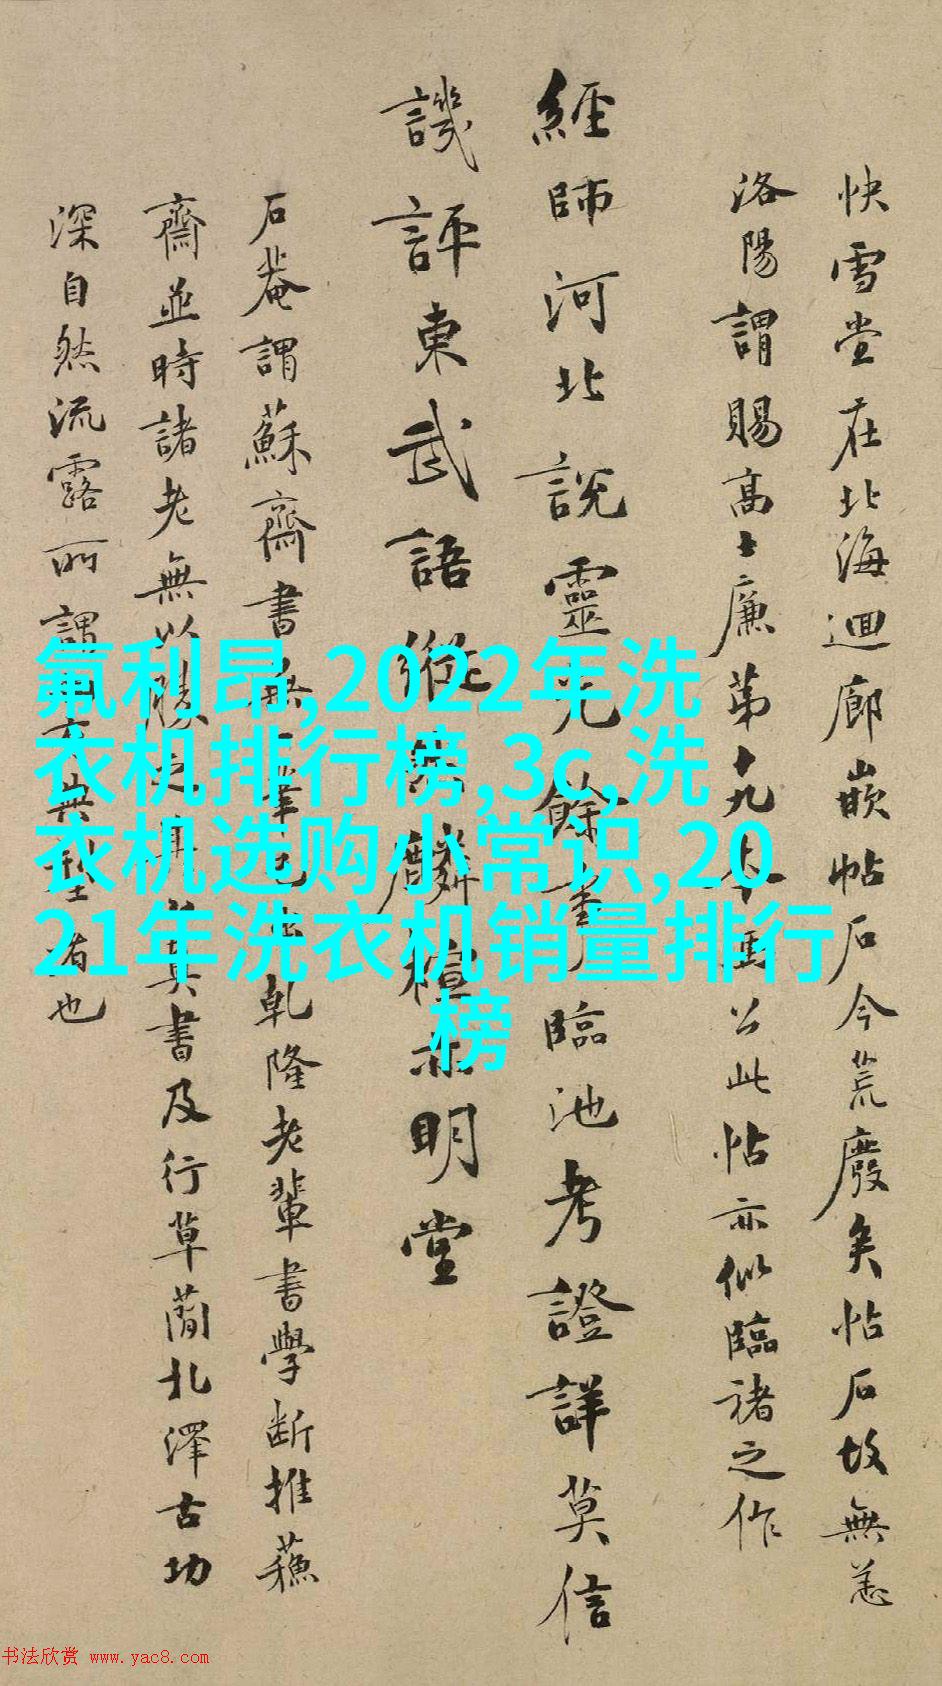 快雪堂在北海迴廊嵌帖石今荒廢矣帖石故無恙
洛陽謂賜高士廉第十九本馬公此帖亦似臨諸之作
經師河北說靈光餘事臨池考證詳莫信
譏評東武語縱麟檀亦明堂
石菴謂蘇齋書無一筆也乾隆老輩書學斷推蘓
齋並時諸老無以勝之其書及行草蘭北澤古功
深自然流露所謂無者也
氟利昂,2022年洗
衣机排行榜,3c,洗
衣机选购小常识,20
21年洗衣机销量排行
榜
书法欣赏 www.yac8.com